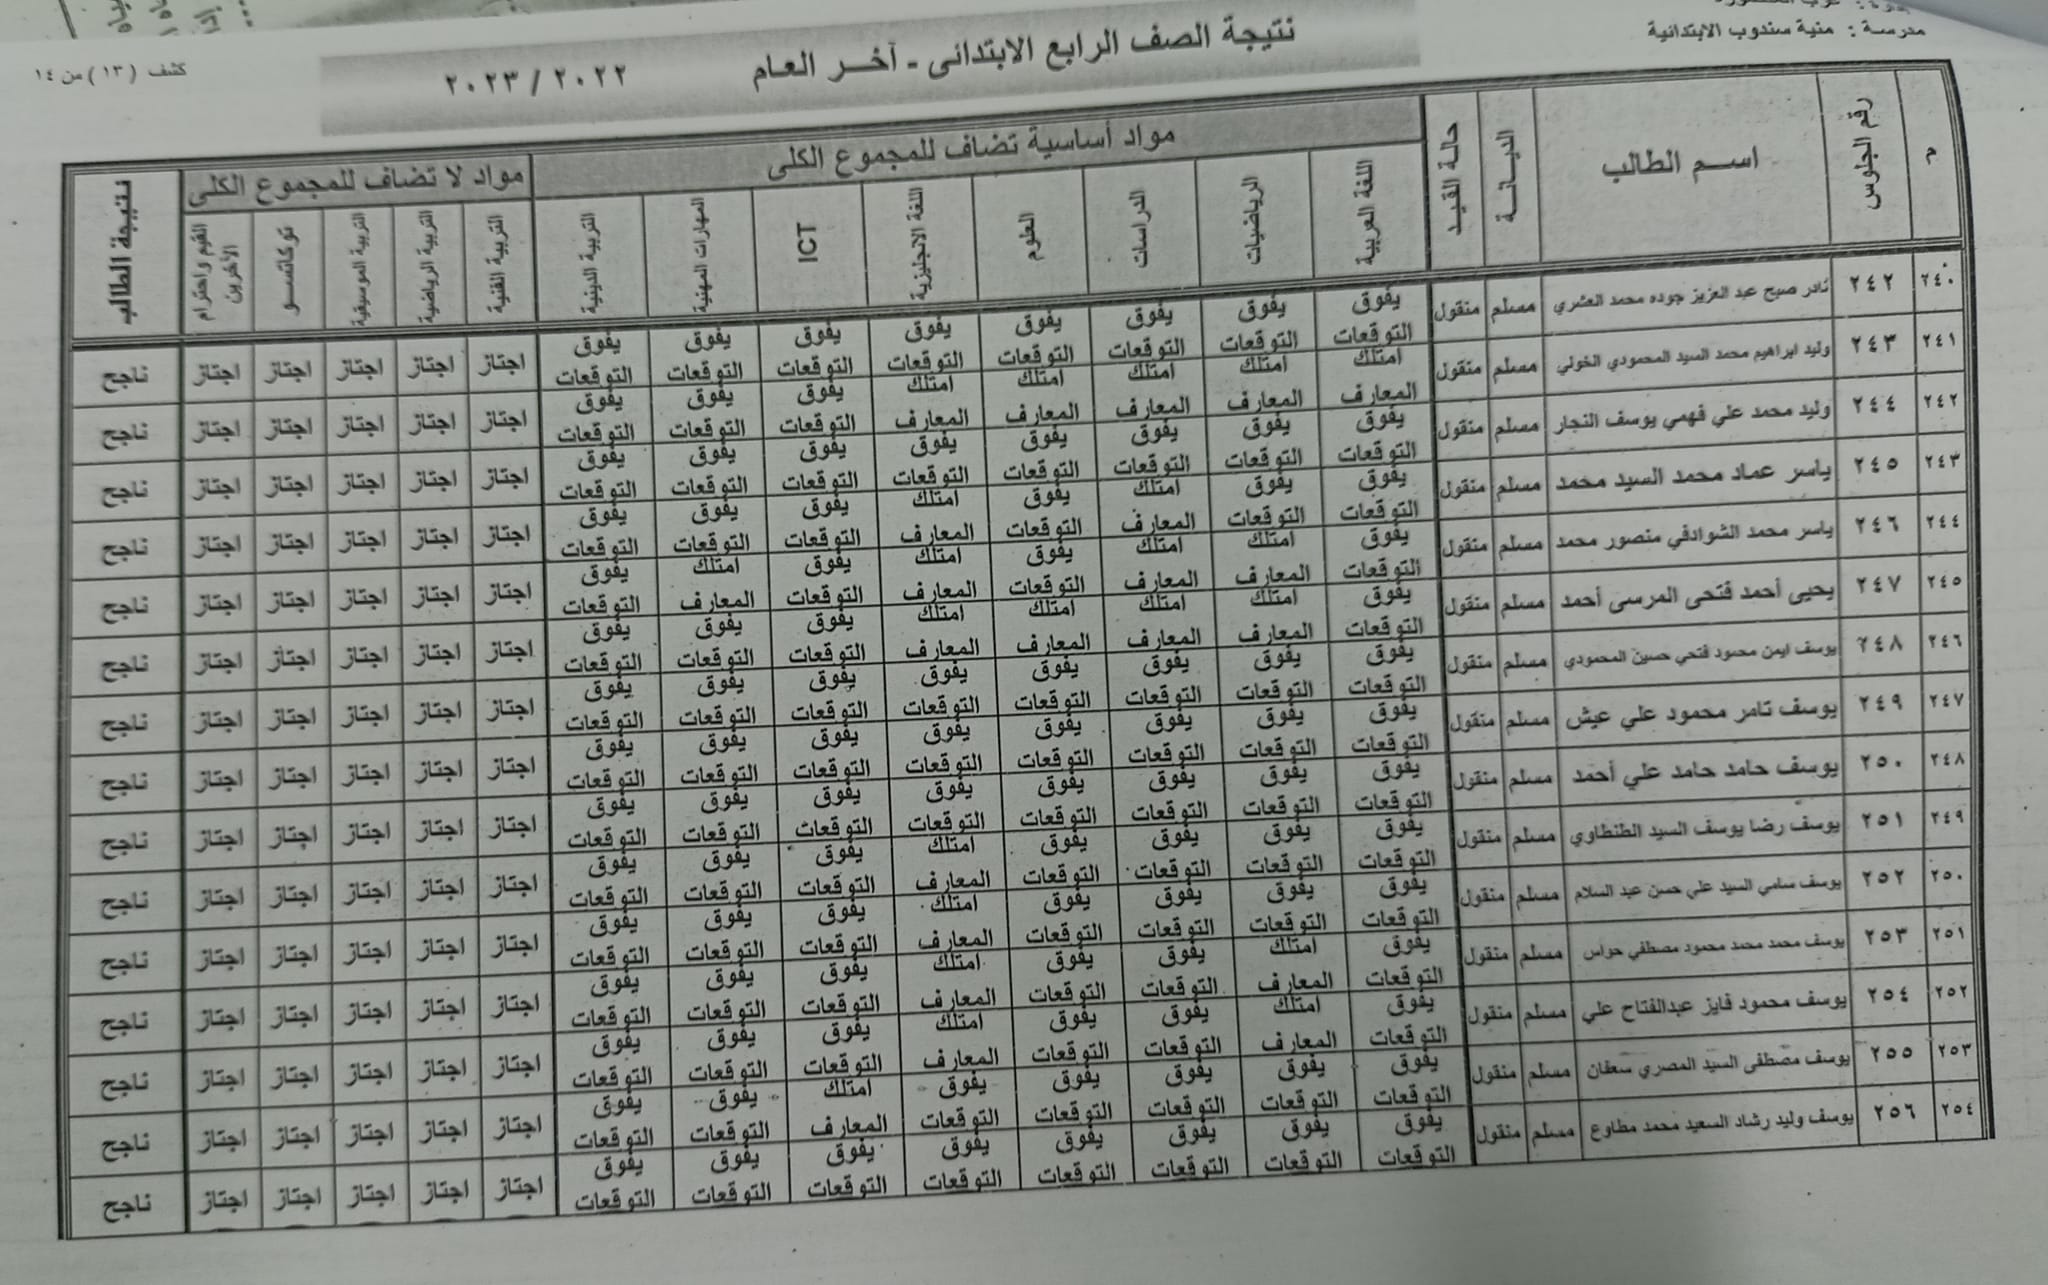 مدرسة : منية سندوب الابتدائية
نتيجة الصف الرابع الابتدائى - آخر العام ٢٠٢٢ / ٢٠٢٣
كشف ( ١٣ ) من ١٤
م رقم الجلوس اسم الطالب الديانة حالة القيد مواد أساسية تضاف للمجموع الكلى مواد لا تضاف للمجموع الكلى نتيجة الطالب
اللغة العربية الرياضيات الدراسات العلوم اللغة الانجليزية ICT المهارات المهنية التربية الدينية التربية الفنية التربية الرياضية التربية الموسيقية توكاتسو القيم واحترام الآخرين
٢٤٠ ٢٤٢ نادر صبح عبد العزيز جوده محمد العشري مسلم منقول يفوق التوقعات يفوق التوقعات يفوق التوقعات يفوق التوقعات يفوق التوقعات يفوق التوقعات يفوق التوقعات يفوق التوقعات اجتاز اجتاز اجتاز اجتاز اجتاز ناجح
٢٤١ ٢٤٣ وليد ابراهيم محمد السيد المحمودي الخولي مسلم منقول امتلك المعارف امتلك المعارف امتلك المعارف امتلك المعارف امتلك المعارف يفوق التوقعات يفوق التوقعات يفوق التوقعات اجتاز اجتاز اجتاز اجتاز اجتاز ناجح
٢٤٢ ٢٤٤ وليد محمد علي فهمي يوسف النجار مسلم منقول يفوق التوقعات يفوق التوقعات يفوق التوقعات يفوق التوقعات يفوق التوقعات يفوق التوقعات يفوق التوقعات يفوق التوقعات اجتاز اجتاز اجتاز اجتاز اجتاز ناجح
٢٤٣ ٢٤٥ ياسر عماد محمد السيد محمد مسلم منقول يفوق التوقعات يفوق التوقعات امتلك المعارف يفوق التوقعات امتلك المعارف يفوق التوقعات يفوق التوقعات يفوق التوقعات اجتاز اجتاز اجتاز اجتاز اجتاز ناجح
٢٤٤ ٢٤٦ ياسر محمد الشوادفي منصور محمد مسلم منقول يفوق التوقعات امتلك المعارف امتلك المعارف يفوق التوقعات امتلك المعارف يفوق التوقعات امتلك المعارف يفوق التوقعات اجتاز اجتاز اجتاز اجتاز اجتاز ناجح
٢٤٥ ٢٤٧ يحيى أحمد فتحى المرسى أحمد مسلم منقول يفوق التوقعات امتلك المعارف امتلك المعارف امتلك المعارف امتلك المعارف يفوق التوقعات يفوق التوقعات يفوق التوقعات اجتاز اجتاز اجتاز اجتاز اجتاز ناجح
٢٤٦ ٢٤٨ يوسف ايمن محمود فتحي حسين المحمودي مسلم منقول يفوق التوقعات يفوق التوقعات يفوق التوقعات يفوق التوقعات يفوق التوقعات يفوق التوقعات يفوق التوقعات يفوق التوقعات اجتاز اجتاز اجتاز اجتاز اجتاز ناجح
٢٤٧ ٢٤٩ يوسف تامر محمود علي عيش مسلم منقول يفوق التوقعات يفوق التوقعات يفوق التوقعات يفوق التوقعات يفوق التوقعات يفوق التوقعات يفوق التوقعات يفوق التوقعات اجتاز اجتاز اجتاز اجتاز اجتاز ناجح
٢٤٨ ٢٥٠ يوسف حامد حامد علي أحمد مسلم منقول يفوق التوقعات يفوق التوقعات يفوق التوقعات يفوق التوقعات يفوق التوقعات يفوق التوقعات يفوق التوقعات يفوق التوقعات اجتاز اجتاز اجتاز اجتاز اجتاز ناجح
٢٤٩ ٢٥١ يوسف رضا يوسف السيد الطنطاوي مسلم منقول يفوق التوقعات يفوق التوقعات يفوق التوقعات يفوق التوقعات امتلك المعارف يفوق التوقعات يفوق التوقعات يفوق التوقعات اجتاز اجتاز اجتاز اجتاز اجتاز ناجح
٢٥٠ ٢٥٢ يوسف سامي السيد علي حسن عبد السلام مسلم منقول يفوق التوقعات يفوق التوقعات يفوق التوقعات يفوق التوقعات امتلك المعارف يفوق التوقعات يفوق التوقعات يفوق التوقعات اجتاز اجتاز اجتاز اجتاز اجتاز ناجح
٢٥١ ٢٥٣ يوسف محمد محمد محمود مصطفي حواس مسلم منقول يفوق التوقعات امتلك المعارف يفوق التوقعات يفوق التوقعات امتلك المعارف يفوق التوقعات يفوق التوقعات يفوق التوقعات اجتاز اجتاز اجتاز اجتاز اجتاز ناجح
٢٥٢ ٢٥٤ يوسف محمود فايز عبدالفتاح علي مسلم منقول يفوق التوقعات امتلك المعارف يفوق التوقعات يفوق التوقعات امتلك المعارف يفوق التوقعات يفوق التوقعات يفوق التوقعات اجتاز اجتاز اجتاز اجتاز اجتاز ناجح
٢٥٣ ٢٥٥ يوسف مصطفى السيد المصري سعفان مسلم منقول يفوق التوقعات يفوق التوقعات يفوق التوقعات يفوق التوقعات يفوق التوقعات امتلك المعارف يفوق التوقعات يفوق التوقعات اجتاز اجتاز اجتاز اجتاز اجتاز ناجح
٢٥٤ ٢٥٦ يوسف وليد رشاد السعيد محمد مطاوع مسلم منقول يفوق التوقعات يفوق التوقعات يفوق التوقعات يفوق التوقعات يفوق التوقعات يفوق التوقعات يفوق التوقعات يفوق التوقعات اجتاز اجتاز اجتاز اجتاز اجتاز ناجح